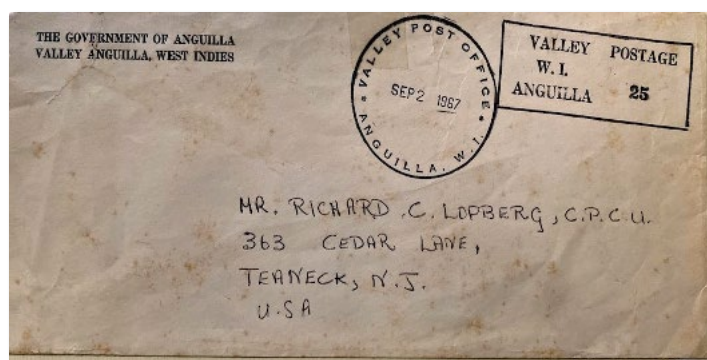 THE GOVERNMENT OF ANGUILLA
VALLEY ANGUILLA, WEST INDIES
VALLEY POST OFFICE
SEP 2 1967
ANGUILLA, W. I.
VALLEY POSTAGE
W. I.
ANGUILLA 25
MR. RICHARD .C. LOPBERG, C.P.C.U.
363 CEDAR LANE,
TEANECK, N.J.
U.SA